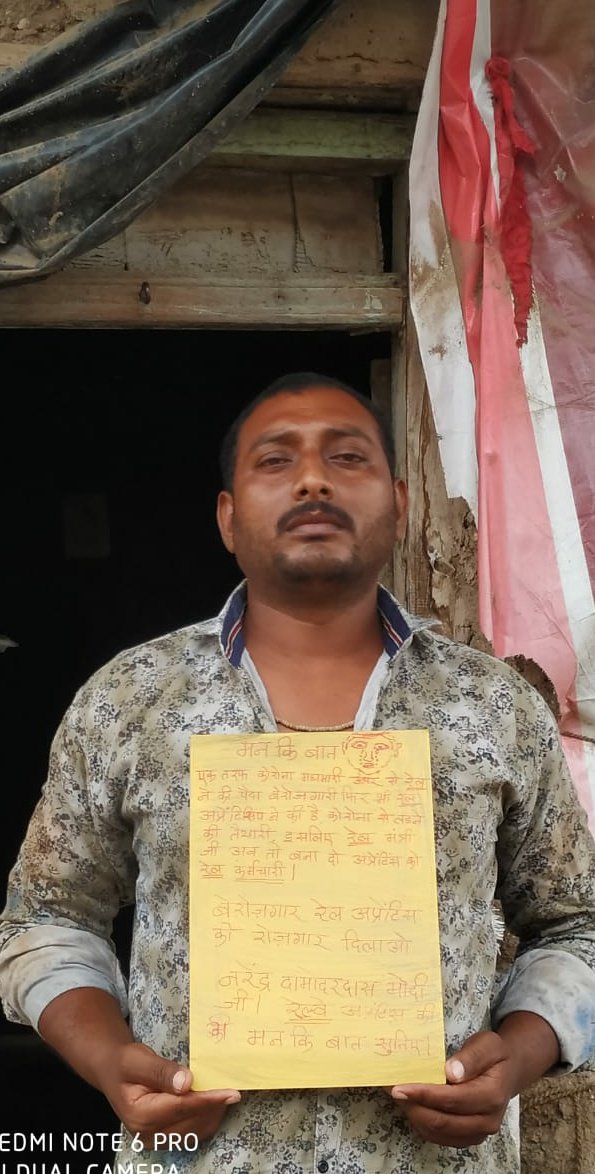 मन कि बात
एक तरफ कोरोना महामारी ऊपर से रेल
ने की पैदा बेरोजगारी फिर भी रेल
अप्रेंटिस ने की है कोरोना से लडने
की तैयारी इसलिए रेल मंत्री
जी अब तो बना दो अप्रेंटिस को
रेल कर्मचारी।
बेरोज़गार रेल अप्रेंटिस
को रोज़गार दिलाओ
नरेंद्र दामोदरदास मोदी
जी। रेल्वे अप्रेंटिस की
भी मन कि बात सुनिए।
EDMI NOTE 6 PRO
I DUAL CAMERA